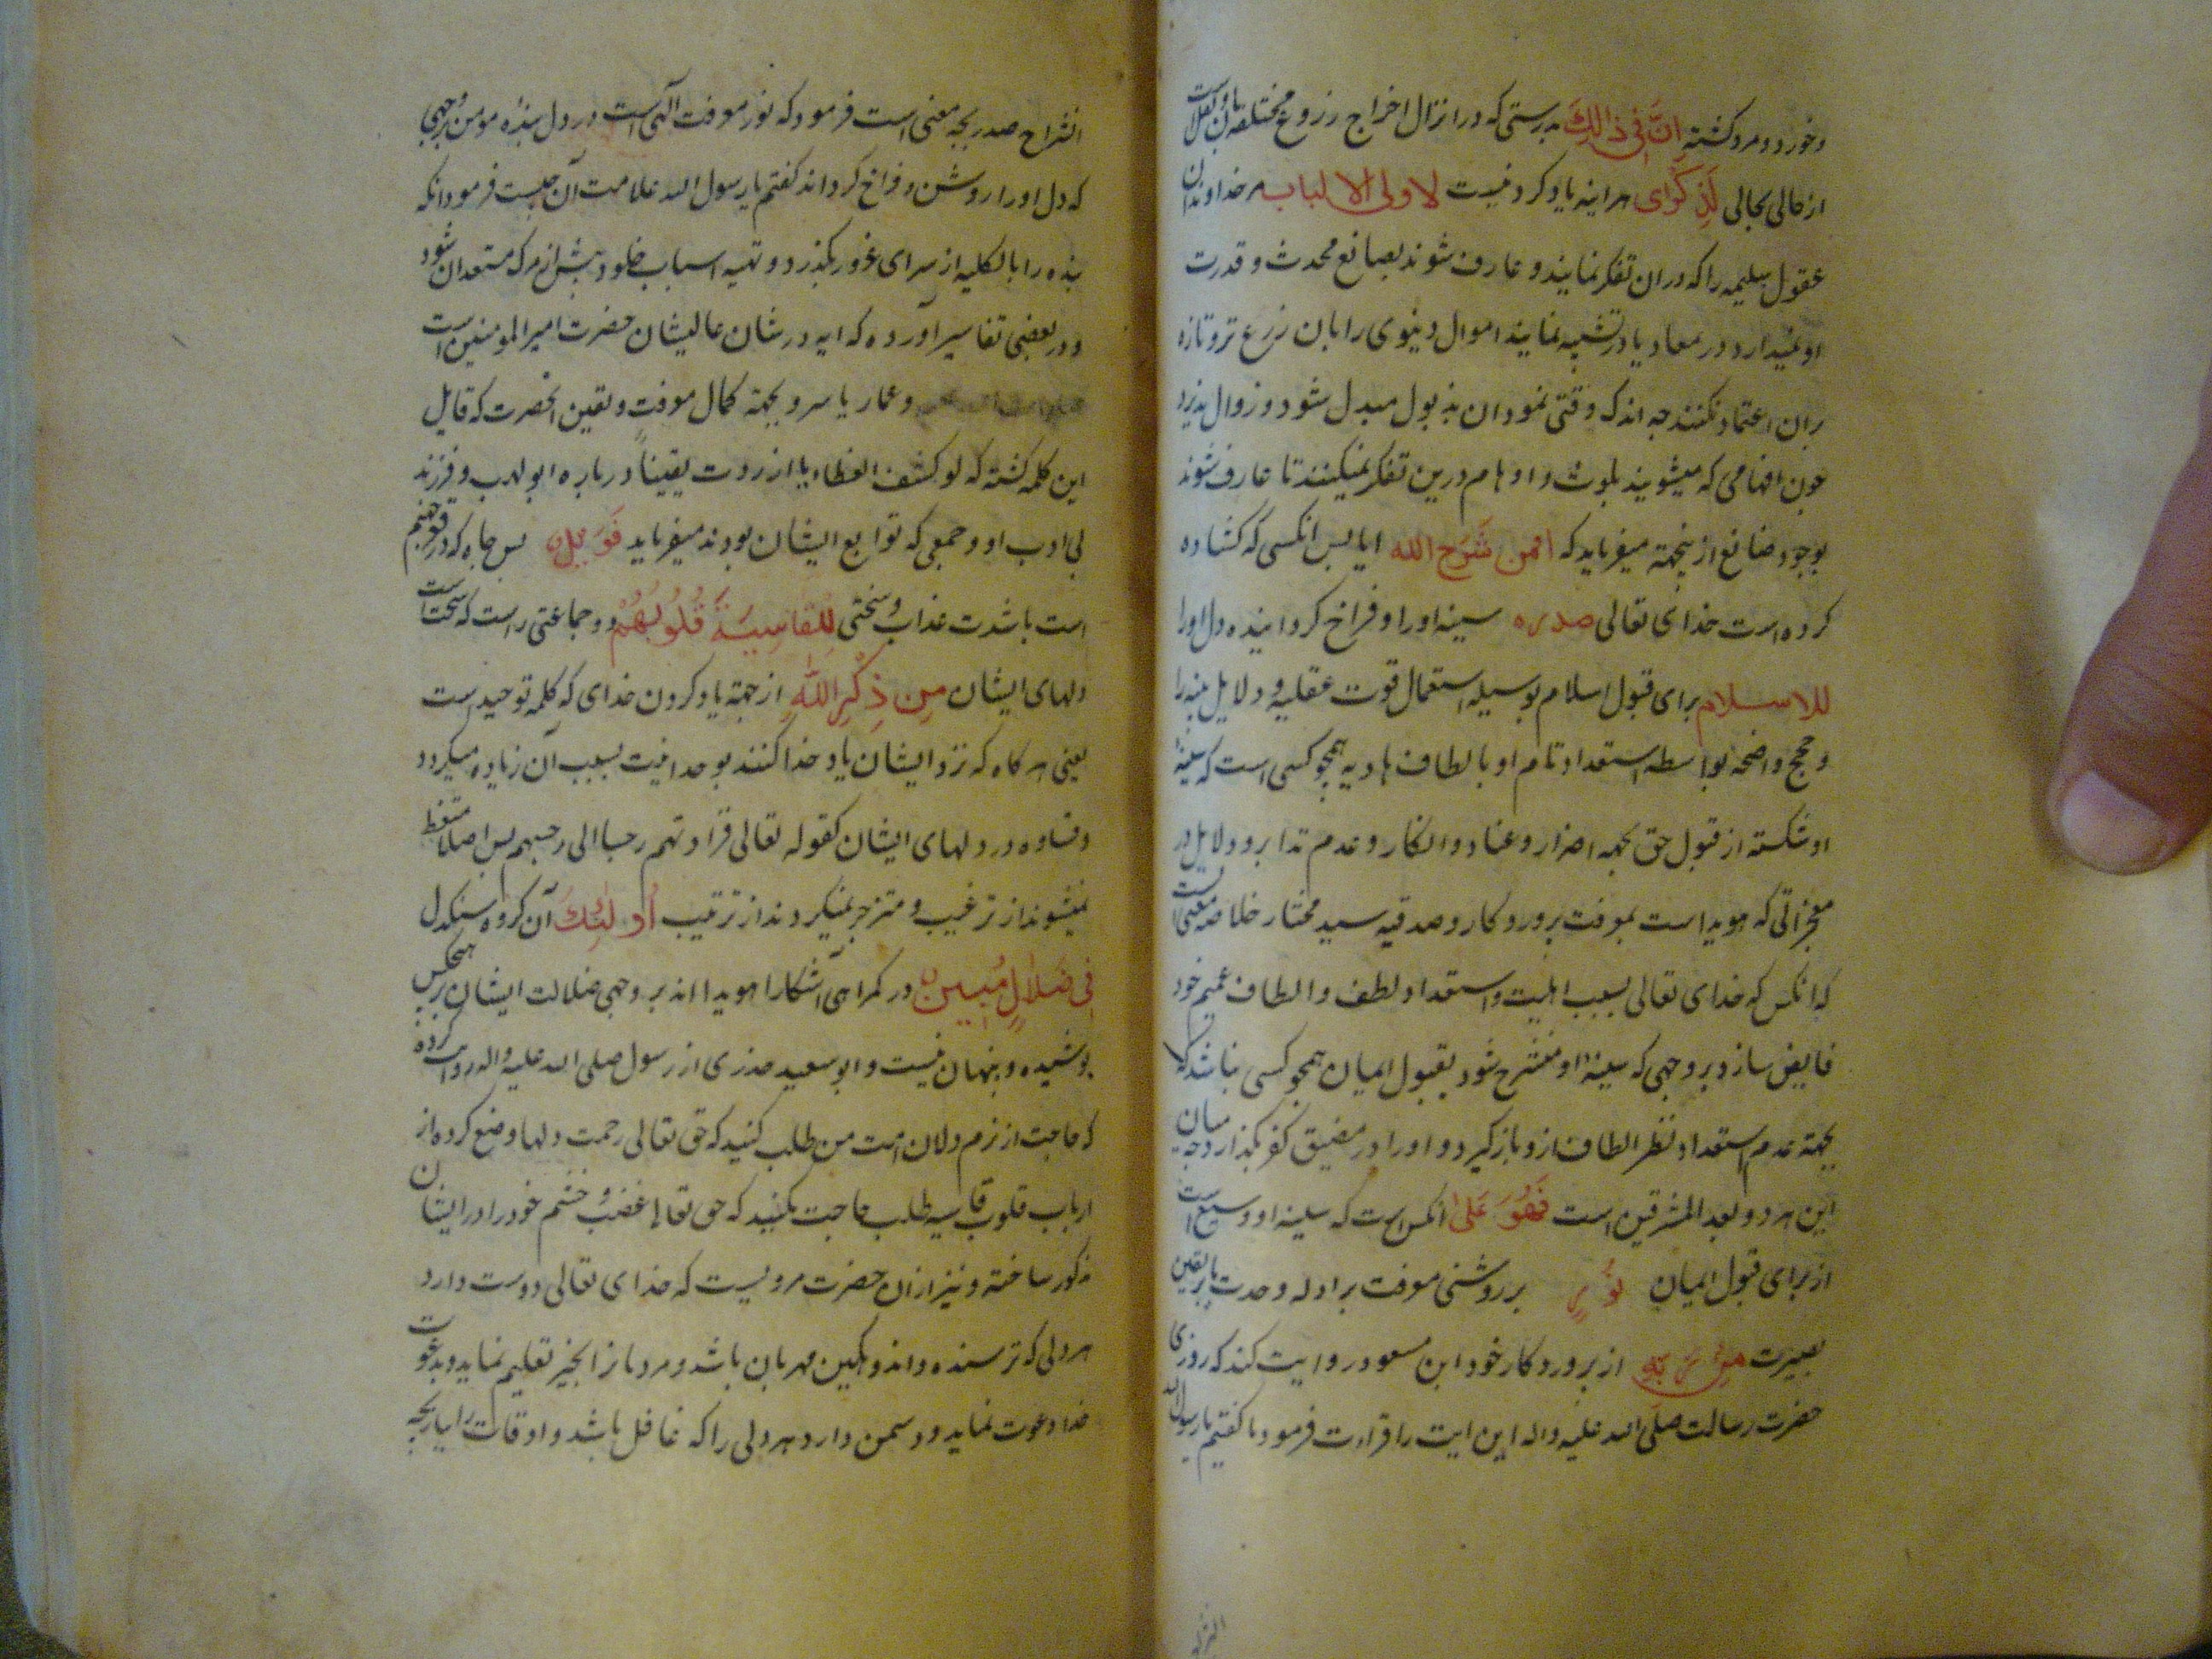 وخورد و مرد کشته اِنَّ فی ذالِكَ بدرستی که در انزال اخراج زروع مختلفه
از حالی بحالی لَذِکرٰی هراینه یاد کردنیست لاولی الالباب مر خداوندان
عقول سلیمه را که دران تفکر نمایند و عارف شوند بصانع محدث و قدرت
او در معاد یا تشبیه نمایند اموال دنیوی را بان زرع تر و تازه
بران اعتماد نکنند چه اندک وقتی نمود ان بذبول مبدل شود و زوال پذیرد
چون افهامی که بلوث و اوهام درین تفکر نمیکنند تا عارف شوند
بوجود صانع ازینجهته میفرماید که افمن شَرَح الله ایا پس انکسی که کشاده
کرده است خدای تعالی صدره سینه او را و فراخ کردانیده دل او را
للاسلام برای قبول اسلام بوسیله استعمال قوت عقلیه و دلایل بینه را
و حجج واضحه بواسطه استعداد تام او بالطاف هادیه همچو کسی است که سینهٔ
او شکسته از قبول حق بجهه اصرار و عناد و انکار و عدم تدابر و دلایل در
معجزاتی که هویداست بموفت پروردکار و صدقیه سید مختار خلاصه معنی است
که انکس که خدای تعالی بسبب اهلیت و استعداد لطف و الطاف عمیم خود
فایض سازد بر وجهی که سینهٔ او منشرح شود بقبول ایمان همچو کسی نباشد که
بجهته عدم استعداد نظر الطاف ازو باز کیرد و او را در مضیق کفر بکذارد چه میان
این هر دو بعد المشرقین است فَهُوَ عَلیٰ انکس است که سینه او وسیع است
از برای قبول ایمان نُورٍ بر روشنی موفت بر ادله وحدت
بصیرت من رَبّه از پروردکار خود ابن مسعود روایت کند که روزی
حضرت رسالت صلی الله علیه واله این ایت را قراءت فرمود ما کفتیم یا رسول الله
انشراح صدر بچه معنی است فرمود که نور موفت الهی است در دل بنده مومن بر وجهی
که دل او را روشن و فراخ کرداند کفتم یا رسول الله علامت آن چیست فرمود انکه
بنده را بالکلیه از سرای غرور بکذرد و تهیه اسباب خلود پیش از مرک مستعد ان شود
و در بعضی تفاسیر آورده که ایه در شان عالیشان حضرت امیر المومنین است
و عمار یاسر و بجهته کمال موفت و یقین انحضرت که قایل
این کلمه کشته که لو کشف الغطاء یا ازردت یقیناً در باره ابو لهب و فرزند
بی ادب او و جمعی که توابع ایشان بودند میفرماید فَوَیلٌ پس چاه که در قعر جهنم
است با شدت عذاب و سختی لِلقاسِیَةِ قُلُوبُهُم و جماعتی راست که سختست
دلهای ایشان مِن ذِکرِ اللّٰهِ از جهته یاد کردن خدای که کلمه توحیدست
یعنی هر کاه که نزد ایشان یاد خدا کنند بوحدانیت بسبب آن زیاده میکردد
و قساوه در دلهای ایشان کقوله تعالی فزادتهم رجسا الی رجسهم پس اصلا متعظ
نمیشوند از ترغیب و متزجر نمیکردند از ترتیب اُولٰئِكَ آن کروه سنکدل
فی ضَلالٍ مُبینٍ در کمراهی آشکارا هویدا اند بر وجهی ضلالت ایشان بر هیچکس
پوشیده و پنهان نیست و ابو سعید خدری از رسول صلی الله علیه واله روایت کرده
که حاجت از نرم دلان امت من طلب کنید که حق تعالی رحمت دلها وضع کرده از
ارباب قلوب قاسیه طلب حاجت مکنید که حق تعالی غضب و خشم خود را در ایشان
مذکور ساخته و نیز ازان حضرت مرویست که خدای تعالی دوست دارد
هر دلی که ترسنده و اندوهکین مهربان باشد و مردمانرا الخیر تعلیم نماید و بدعوت
خدا دعوت نماید و دشمن دارد هر دلی را که غافل باشد و اوقات را